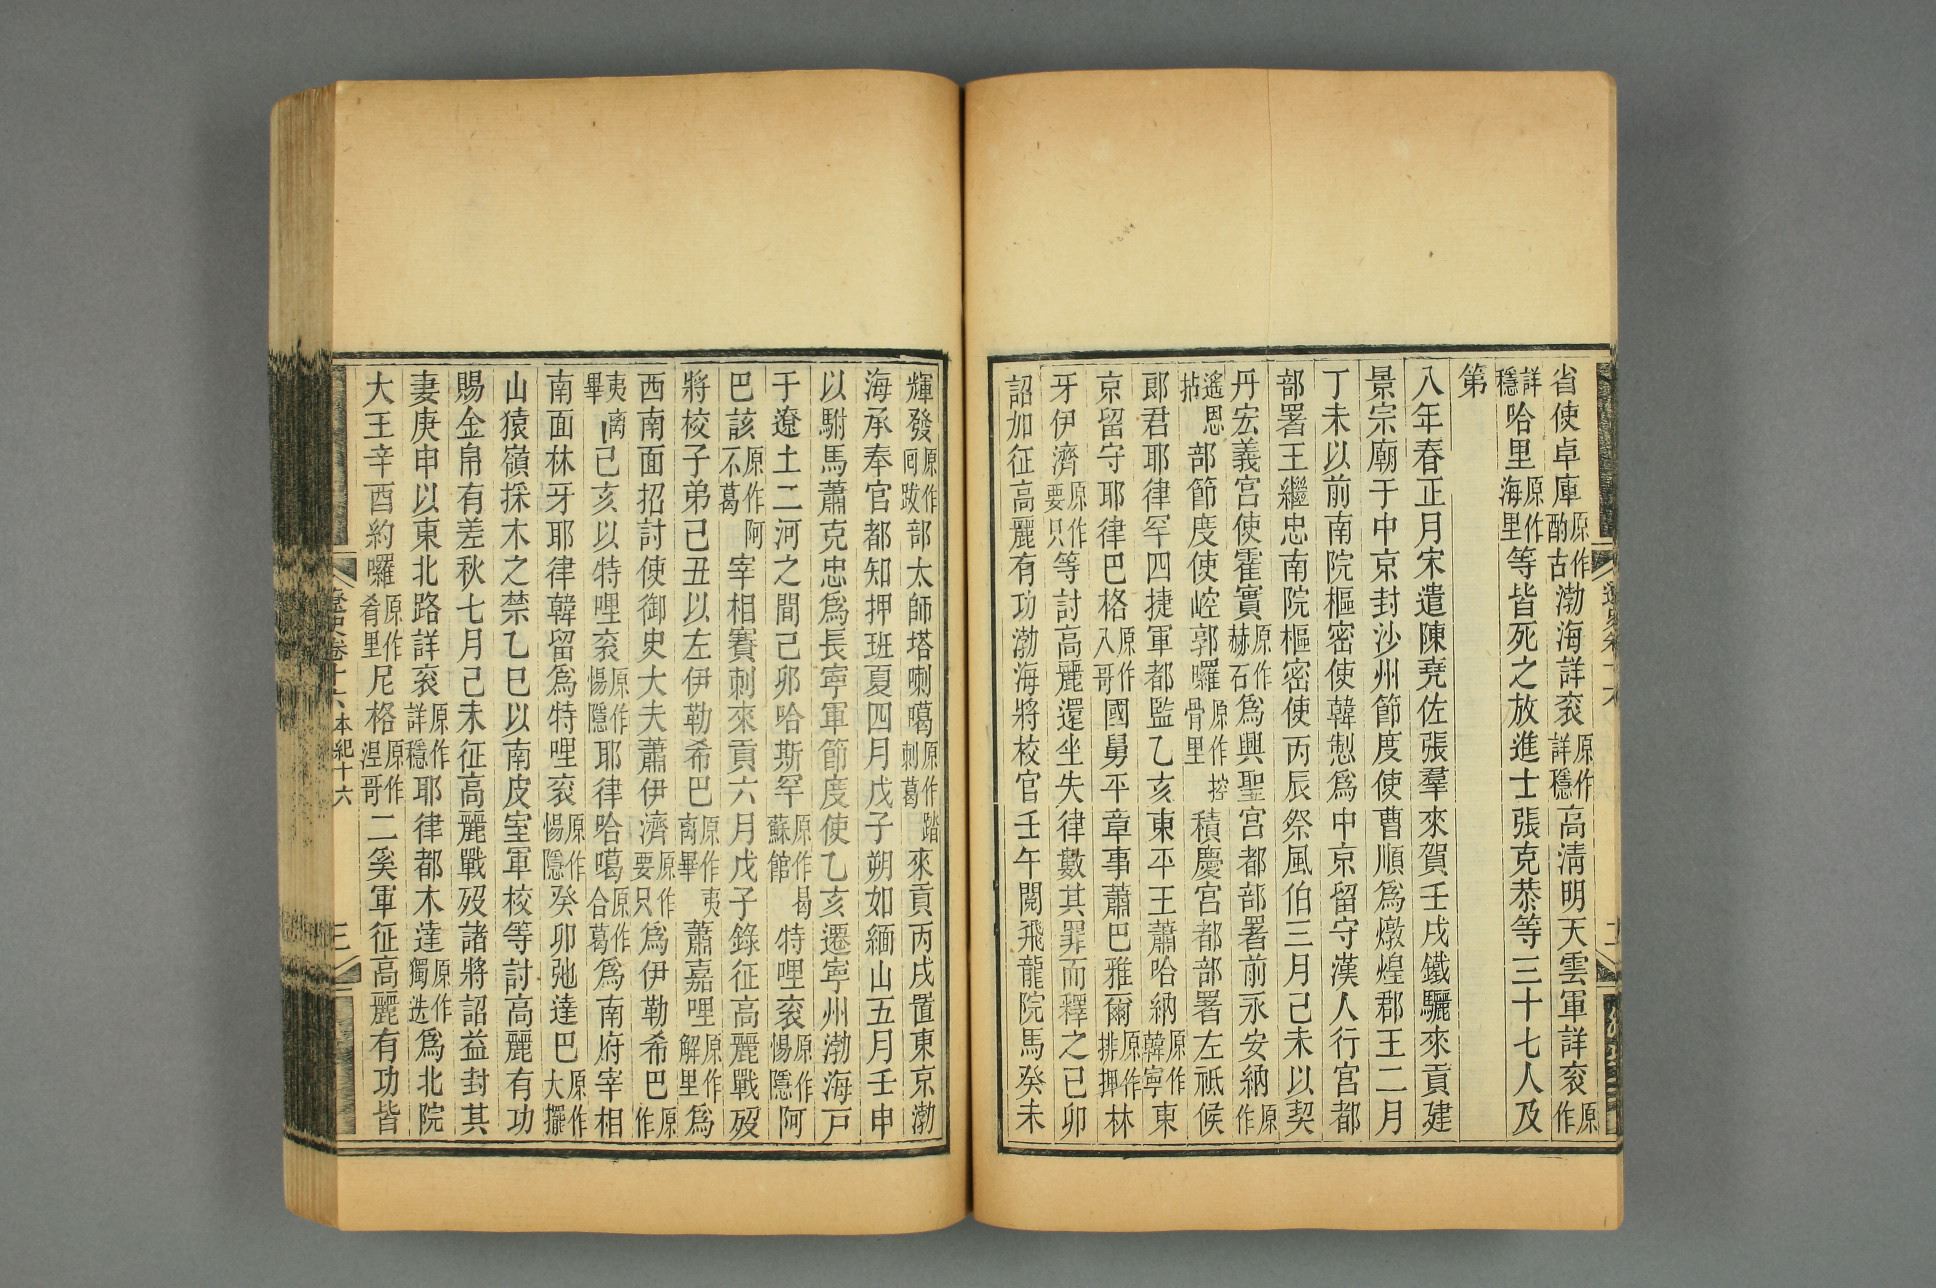 省使卓庫原作酌古渤海詳袞原作詳穩高清明天雲軍詳袞原作
詳穩哈里原作海里等皆死之放進士張克恭等三十七人及
第
八年春正月宋遣陳堯佐張羣來賀壬戌鐵驪來貢建
景宗廟于中京封沙州節度使曹順爲燉煌郡王二月
丁未以前南院樞密使韓制爲中京留守漢人行宮都
部署王繼忠南院樞密使丙辰祭風伯三月己未以契
丹宏義宮使霍實原作赫石爲興聖宮都部署前永安納原作
遙思拈部節度使崆郭囉原作控骨里積慶宮都部署左祗候
郎君耶律罕四捷軍都監乙亥東平王蕭哈納原作韓寧東
京留守耶律巴格原作八哥國舅平章事蕭巴雅爾原作排押林
牙伊濟原作要只等討高麗還坐失律數其罪而釋之己卯
詔加征高麗有功渤海將校官壬午閱飛龍院馬癸未
輝發原作回跋部太師塔喇噶原作踏剌葛來貢丙戌置東京渤
海承奉官都知押班夏四月戊子朔如緬山五月壬申
以駙馬蕭克忠爲長寧軍節度使乙亥遷寧州渤海戸
于遼土二河之間己卯哈斯罕原作曷蘇館特哩袞原作惕隱阿
巴該原作阿不葛宰相賽刺來貢六月戊子錄征高麗戰歿
將校子弟己丑以左伊勒希巴原作夷离畢蕭嘉哩原作解里爲
西南面招討使御史大夫蕭伊濟原作要只爲伊勒希巴原作
夷离畢己亥以特哩袞原作惕隱耶律哈噶原作合葛爲南府宰相
南面林牙耶律韓留爲特哩袞原作惕隱癸卯弛達巴原作大擺
山猿嶺採木之禁乙巳以南皮室軍校等討高麗有功
賜金帛有差秋七月己未征高麗戰歿諸將詔益封其
妻庚申以東北路詳袞原作詳穩耶律都木達原作獨迭爲北院
大王辛酉約囉原作肴里尼格原作涅哥二奚軍征高麗有功皆
遼史卷十六 本紀十六
三